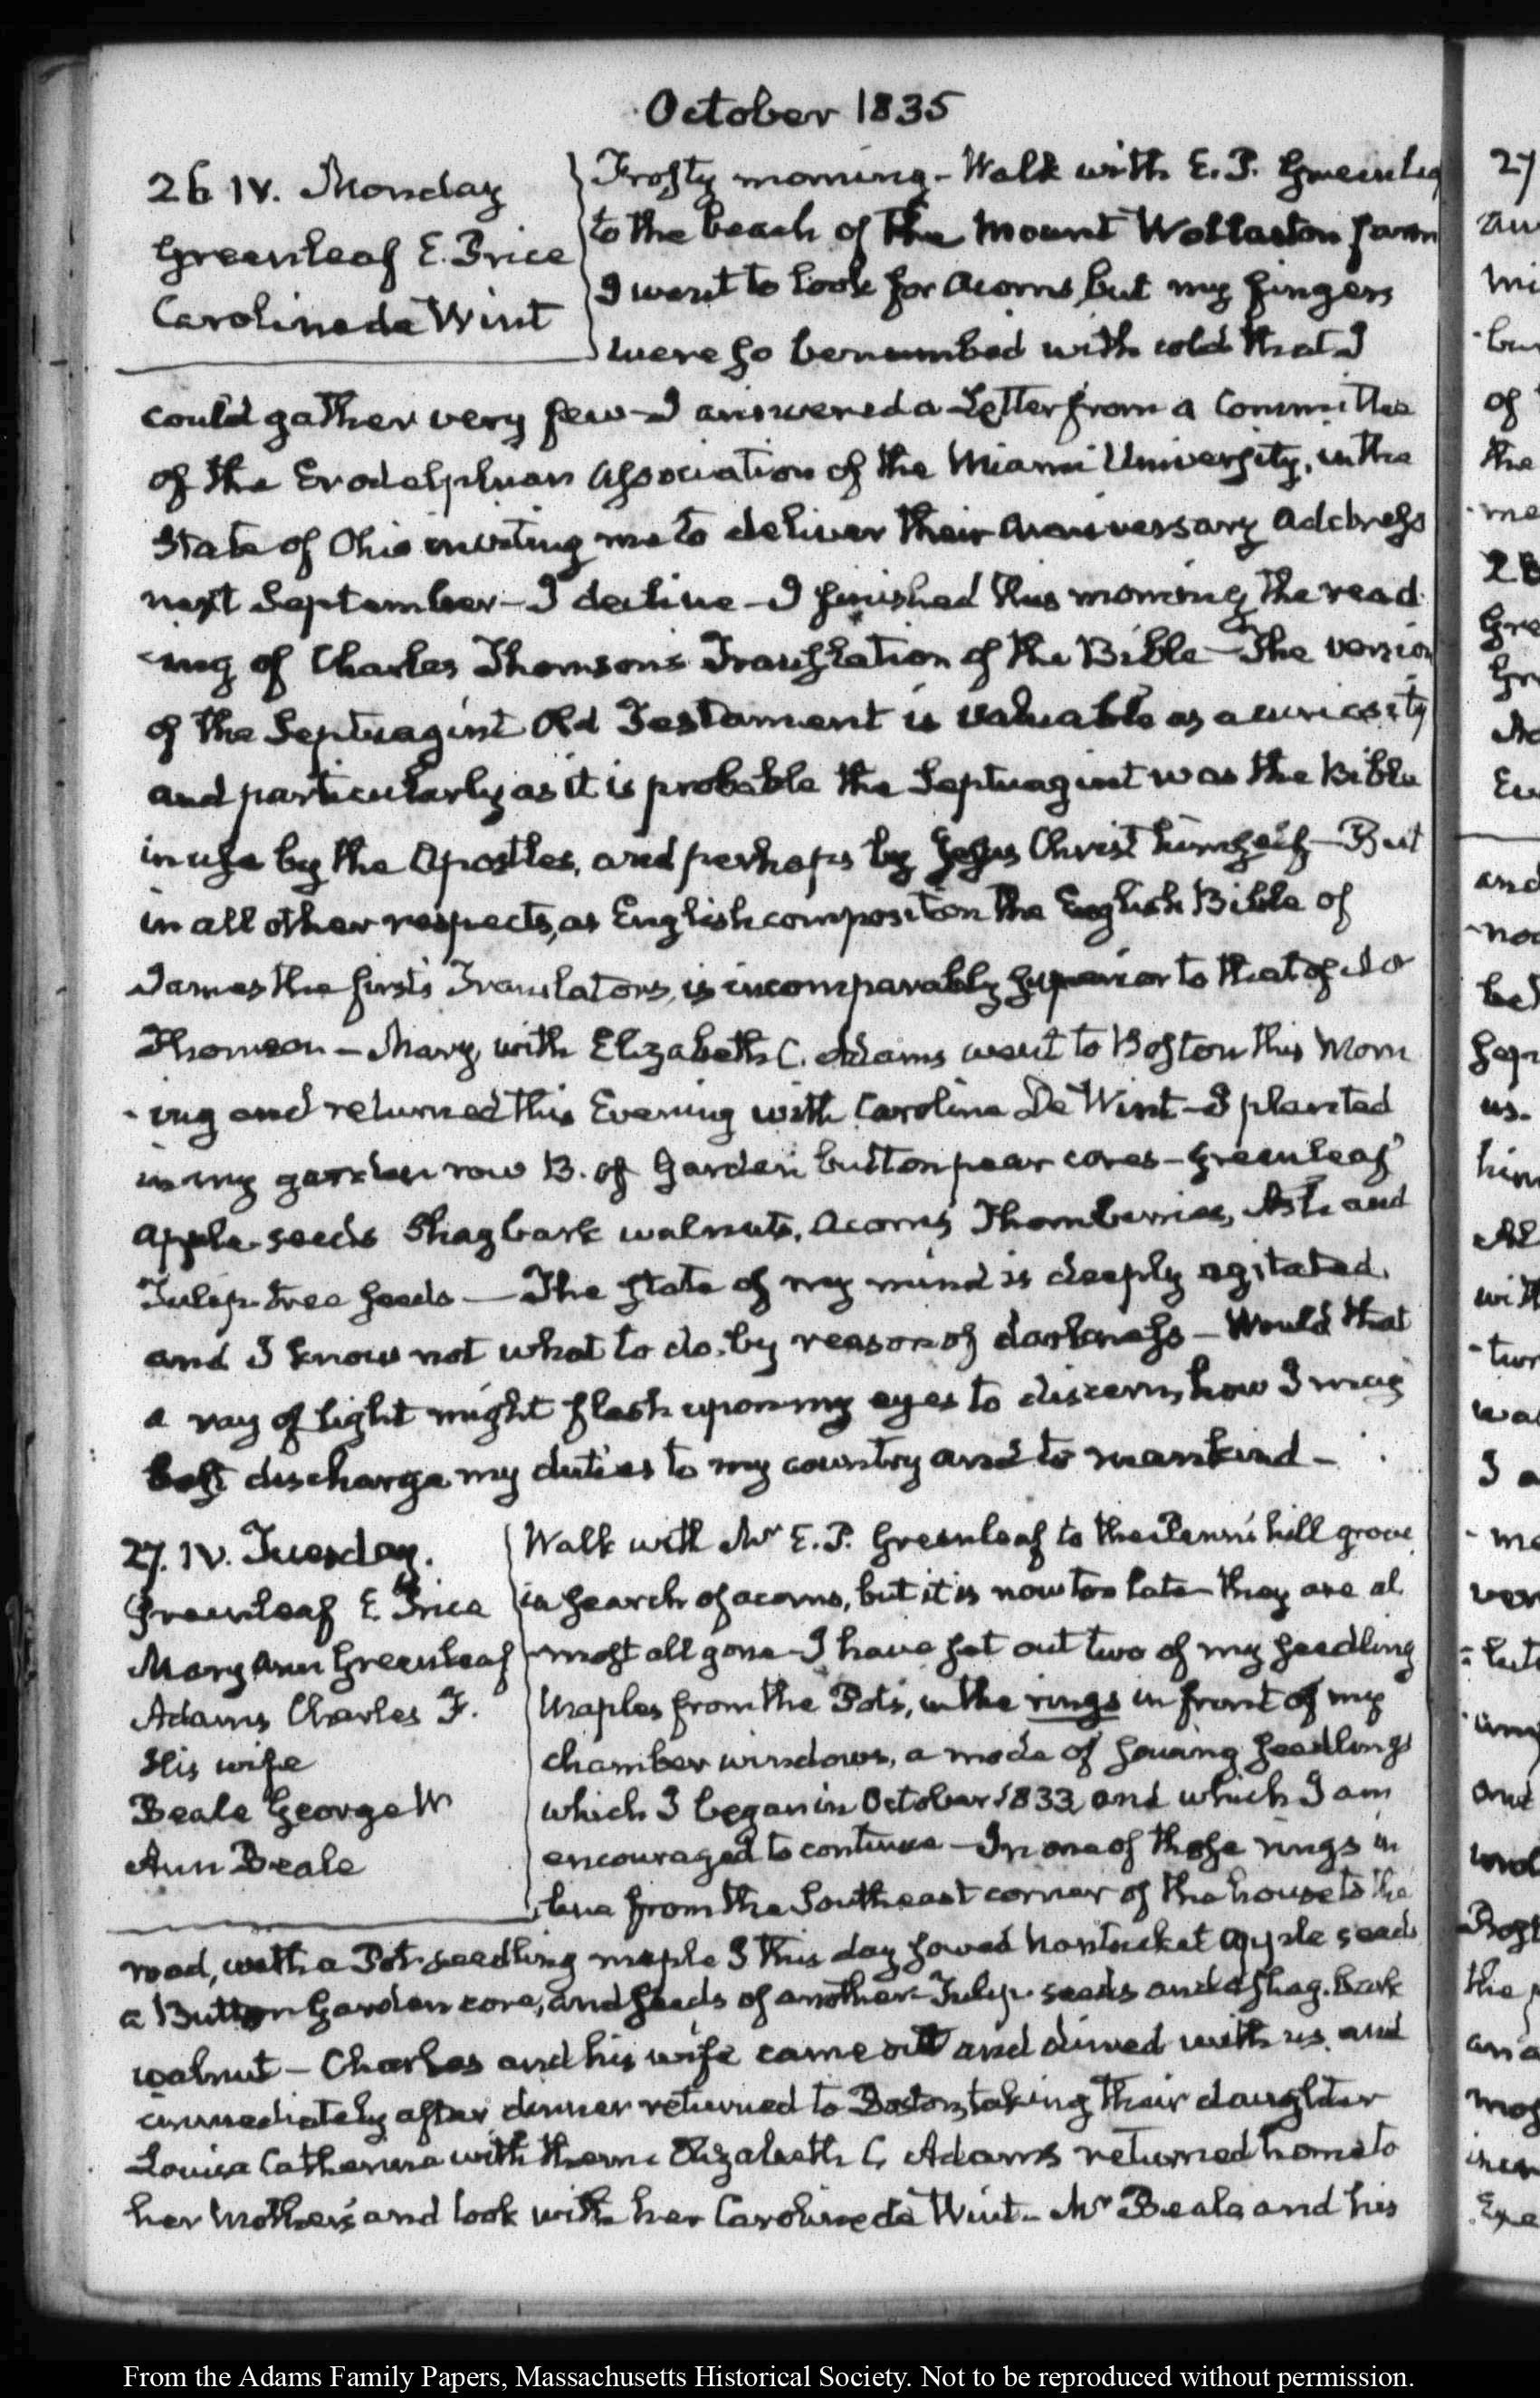 October 1835
26 IV. Monday
Greenleaf E. Price
Caroline de Wint
Frosty morning - Walk with E. P. Greenleaf
to the beach of the Mount Wollaston farm
I went to look for acorns, but my fingers
were so benumbed with cold that I
could gather very few - I answered a Letter from a Committee
of the Erodelphian Association of the Miami University, in the
State of Ohio inviting me to deliver their anniversary address
next September - I decline - I finished this morning the read
-ing of Charles Thomson's Translation of the Bible - The version
of the Septuagint Old Testament is valuable as a curiosity
and particularly as it is probable the Septuagint was the Bible
in use by the Apostles, and perhaps by Jesus Christ himself - But
in all other respects, as English composition the English Bible of
James the first's Translators, is incomparably superior to that of
Thomson - Mary, with Elizabeth C. Adams went to Boston this Morn
-ing and returned this Evening with Caroline De Wint - I planted
in my garden row B. of Garden button pear cores - Greenleaf
apple seeds Shagbark walnuts, acorns Thornberries, Ash and
Tulip tree seeds - The state of my mind is deeply agitated,
and I know not what to do, by reason of darkness - Would that
a ray of light might flash upon my eyes to discern, how I may
best discharge my duties to my country and to mankind -
27. IV. Tuesday.
Greenleaf E. Price
Mary Ann Greenleaf
Adams Charles F.
His wife
Beale George W
Ann Beale
Walk with Mr E. P. Greenleaf to the Penn's hill grove
in search of acorns, but it is now too late - they are al
most all gone - I have set out two of my seedling
Maples from the Pots, in the rings in front of my
chamber windows, a mode of sowing seedlings
which I began in October 1833 and which I am
encouraged to continue - In one of those rings in
line from the Southeast corner of the house to the
road, with a Pot seedling maple I this day sowed Nantucket apple seeds
a Button Garden core, and seeds of another - Tulip seeds and a shag. bark
walnut - Charles and his wife came out and dined with us, and
immediately after dinner returned to Boston, taking their daughter
Louisa Catherine with them. Elizabeth C. Adams returned home to
her Mother's and took with her Caroline de Wint - Mr Beale and his
27
mi
of
the
me
28
and
us.
I a
the
From the Adams Family Papers, Massachusetts Historical Society. Not to be reproduced without permission.